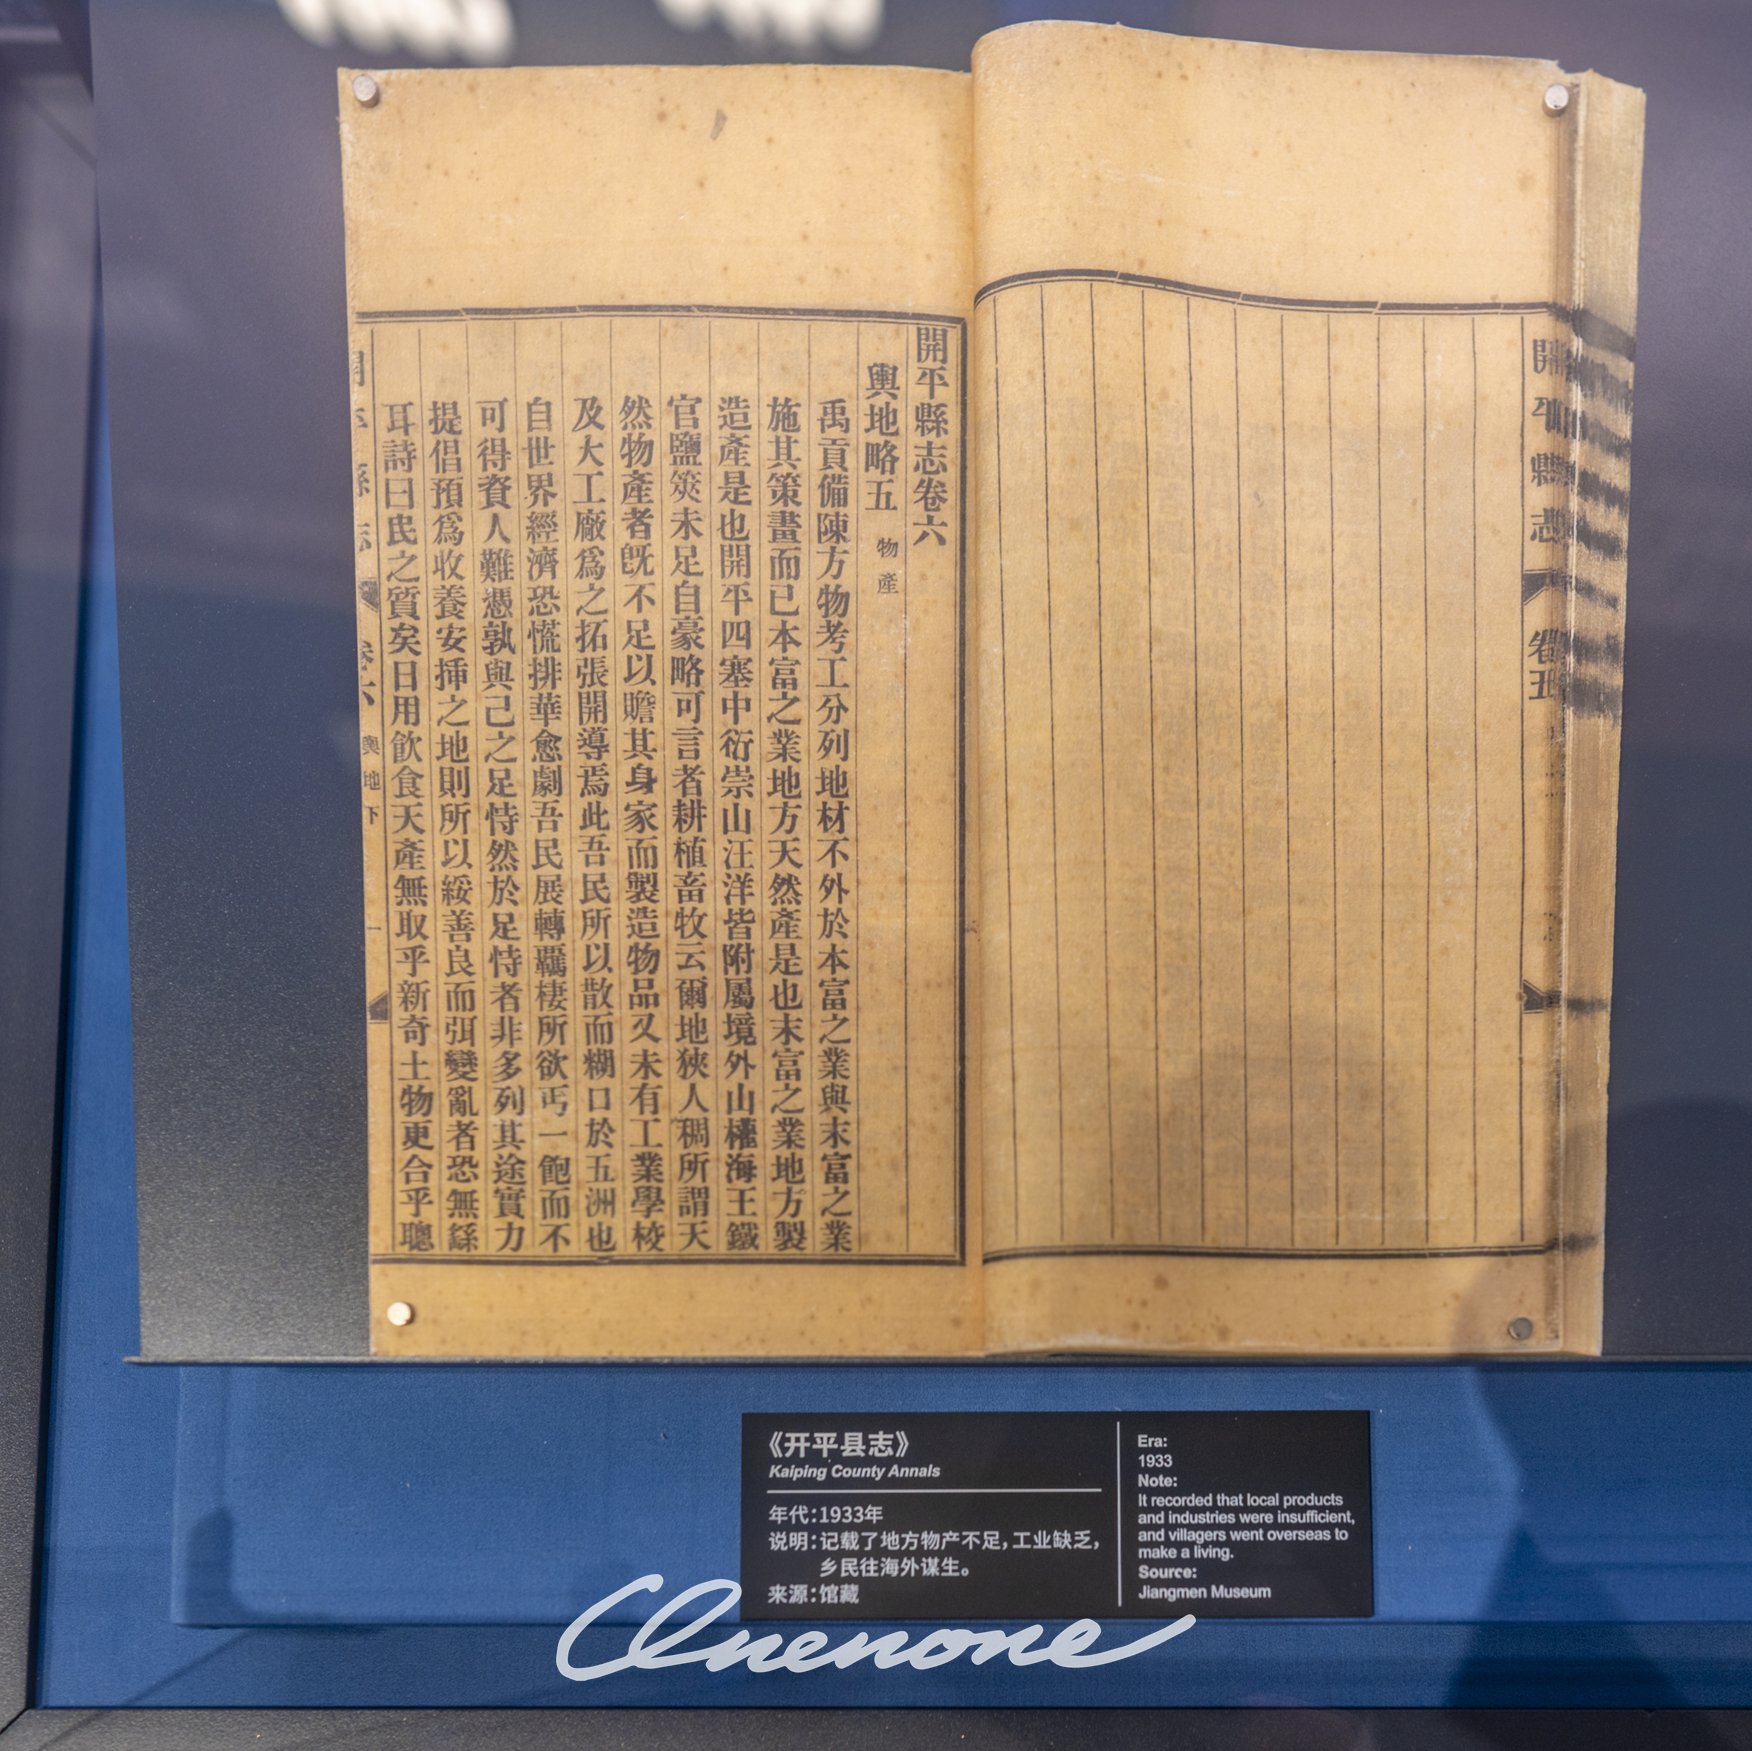 開平縣志卷六
輿地略五 物產
禹貢備陳方物考工分列地材不外於本富之業與末富之業
施其策畫而已本富之業地方天然產是也末富之業地方製
造產是也開平四塞中衍崇山汪洋皆附屬境外山權海王鐵
官鹽筴未足自豪略可言者耕植畜牧云爾地狹人稠所謂天
然物產者旣不足以贍其身家而製造物品又未有工業學校
及大工廠爲之拓張開導焉此吾民所以散而糊口於五洲也
自世界經濟恐慌排華愈劇吾民展轉羈棲所欲丐一飽而不
可得資人難憑孰與己之足恃然於足恃者非多列其途實力
提倡預爲收養安揷之地則所以綏善良而弭變亂者恐無繇
耳詩曰民之質矣日用飲食天產無取乎新奇土物更合乎聰
開平縣志
卷六
輿地下
一
開平縣志
卷五
《开平县志》
Kaiping County Annals
年代:1933年
说明:记载了地方物产不足,工业缺乏,
乡民往海外谋生。
来源:馆藏
Era:
1933
Note:
It recorded that local products
and industries were insufficient,
and villagers went overseas to
make a living.
Source:
Jiangmen Museum